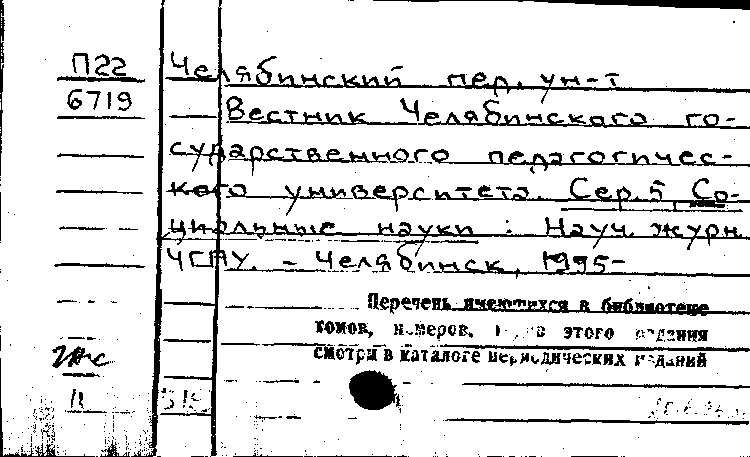 П22 Челябинский пед. ун-т
6719 Вестник Челябинского го-
сударственного педагогичес-
кого университета. Сер.5, Со-
циальные науки : Науч. журн.
ЧГПУ. - Челябинск, 1995-
Перечень имеющихся в библиотеке
томов, номеров, этого издания
смотри в каталоге периодических изданий